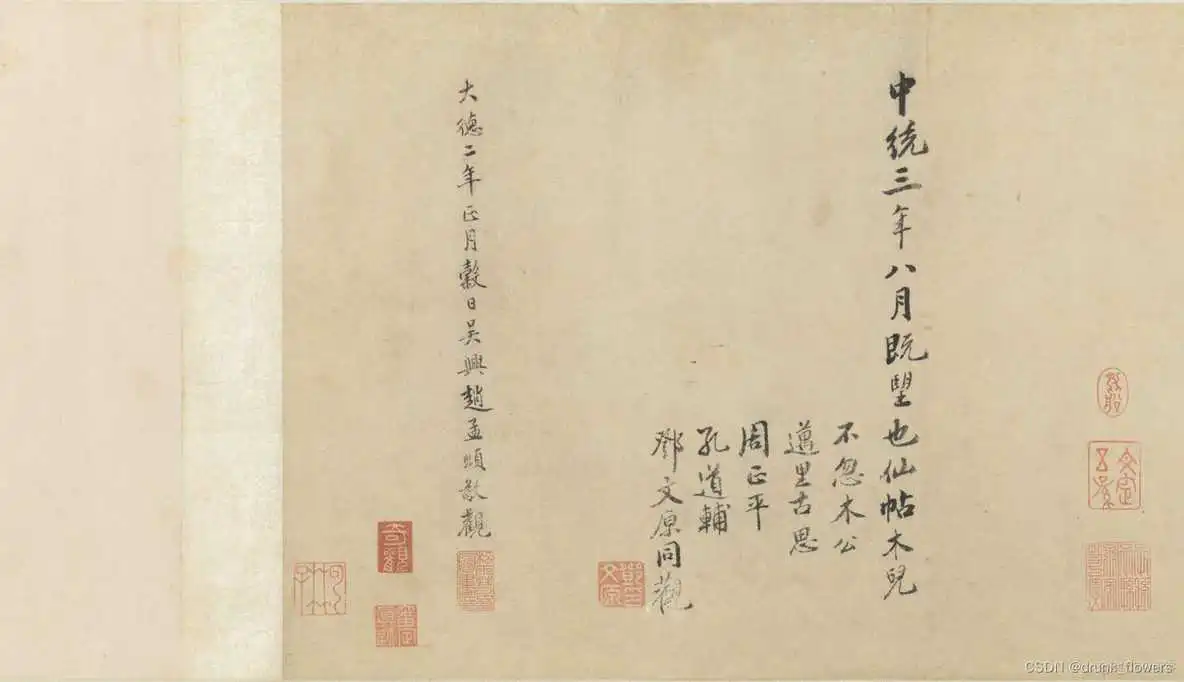 中統三年八月既望也仙帖木兒
不忽木公
邁里古思
周正平
孔道輔
鄧文原同觀
大德二年正月穀日吳興趙孟頫敬觀
奇觀
CSDN @drunk_flowers